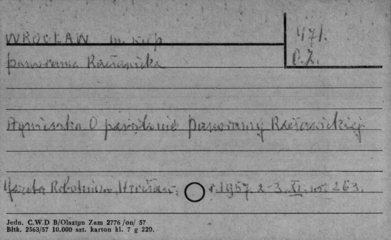 WROCŁAW m. woj.
47/.
P. Z.
panorama Racławicka
Agnieszka O powstanie Panoramy Racławickiej
Gazeta Robotnicza, Wrocław, r. 1957 2-3.XI. nr. 263.
Jedn. C.W.D B/Olsztyn Zam 2776 /on/ 57
Bltk. 2563/57 10.000 szt. karton kl. 7 g 220.